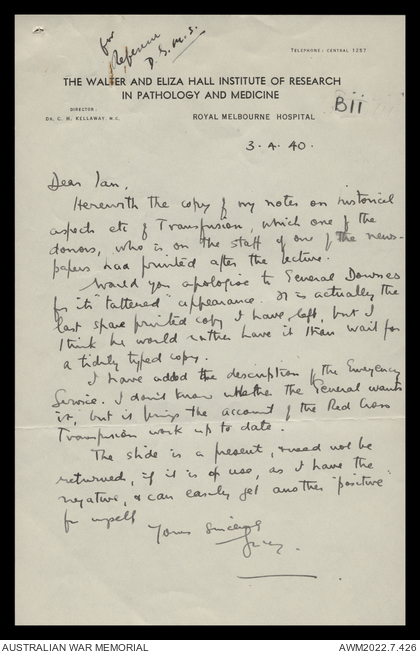 for
Reference
D.G.M.S.
TELEPHONE: CENTRAL 1257
THE WALTER AND ELIZA HALL INSTITUTE OF RESEARCH
IN PATHOLOGY AND MEDICINE
Bii
DIRECTOR:
DR. C. H. KELLAWAY, M.C.
ROYAL MELBOURNE HOSPITAL
3. 4. 40.
Dear Ian,
Herewith the copy of my notes on historical
aspects etc of Transfusion, which one of the
donors, who is on the staff of one of the news-
papers had printed after the lecture.
Would you apologise to General Downes
for its "tattered" appearance. It is actually the
last spare printed copy I have left, but I
think he would rather have it than wait for
a tidily typed copy.
I have added the description of the Emergency
Service. I don't know whether the General wants
it, but it brings the account of the Red Cross
Transfusion work up to date.
The slide is a present, & need not be
returned, if it is of use, as I have the
negative, & can easily get another "positive"
for myself
Yours sincerely
AUSTRALIAN WAR MEMORIAL
AWM2022.7.426